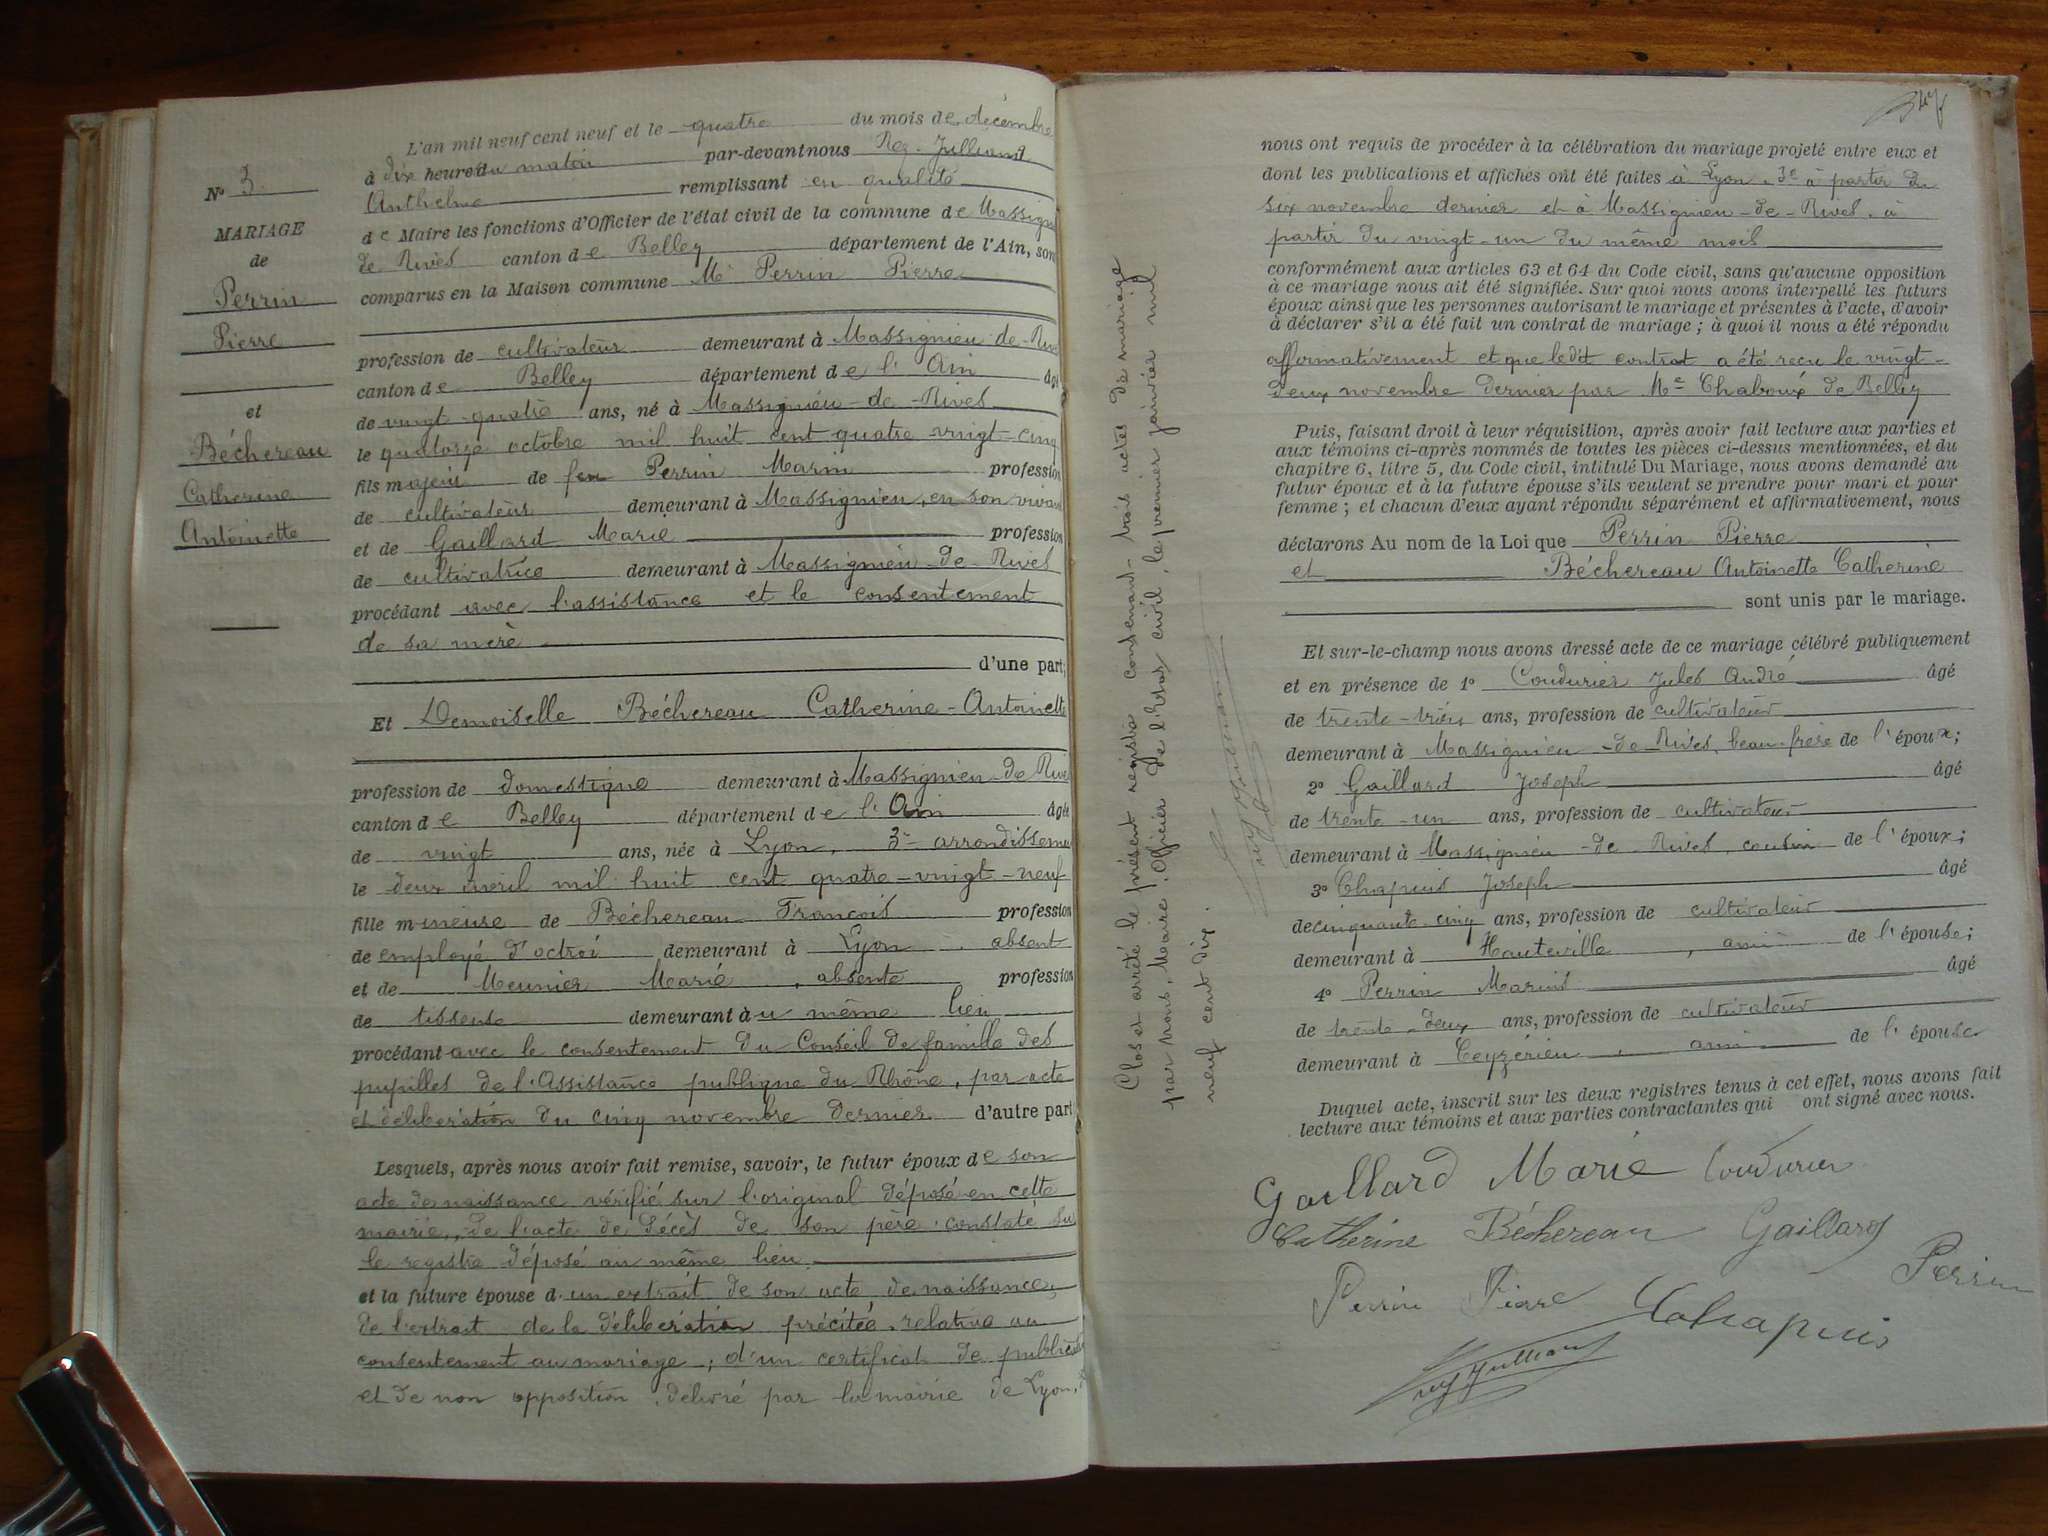 N° 3
MARIAGE
de
Perrin
Pierre
et
Béchereau
Catherine
Antoinette
L'an mil neuf cent neuf et le quatre du mois de décembre
à dix heures du matin par-devant nous Rey-Julliand
Anthelme remplissant en qualité
de Maire les fonctions d'Officier de l'état civil de la commune de Massignieu
de Rives canton de Belley département de l'Ain, sont
comparus en la Maison commune Mr Perrin Pierre
profession de cultivateur demeurant à Massignieu-de-Rives
canton de Belley département de l'Ain âgé
de vingt-quatre ans, né à Massignieu-de-Rives
le quatorze octobre mil huit cent quatre-vingt-cinq
fils majeur de feu Perrin Marin profession
de cultivateur demeurant à Massignieu, en son vivant
et de Gaillard Marie profession
de cultivatrice demeurant à Massignieu-de-Rives
procédant avec l'assistance et le consentement
de sa mère
d'une part;
Et Demoiselle Béchereau Catherine-Antoinette
profession de domestique demeurant à Massignieu-de-Rives
canton de Belley département de l'Ain âgée
de vingt ans, née à Lyon, 3e arrondissement
le deux avril mil huit cent quatre-vingt-neuf
fille mineure de Béchereau François profession
de employé d'octroi demeurant à Lyon, absent
et de Meunier Marie, absente profession
de tisseuse demeurant au même lieu
procédant avec le consentement du Conseil de famille des
pupilles de l'Assistance publique du Rhône, par acte
et délibération du cinq novembre dernier d'autre part
Lesquels, après nous avoir fait remise, savoir, le futur époux de son
acte de naissance vérifié sur l'original déposé en cette
mairie, de l'acte de décès de son père constaté sur
le registre déposé au même lieu
et la future épouse d'un extrait de son acte de naissance,
de l'extrait de la délibération précitée relative au
consentement au mariage; d'un certificat de publication
et de non opposition délivré par la mairie de Lyon, 3e
Clos et arrêté le présent registre contenant trois actes de mariage
par nous, Maire, Officier de l'Etat civil, le premier janvier mil
neuf cent dix.
Rey Julliand
nous ont requis de procéder à la célébration du mariage projeté entre eux et
dont les publications et affiches ont été faites à Lyon, 3e à partir du
six novembre dernier et à Massignieu-de-Rives, à
partir du vingt-un du même mois
conformément aux articles 63 et 64 du Code civil, sans qu'aucune opposition
à ce mariage nous ait été signifiée. Sur quoi nous avons interpellé les futurs
époux ainsi que les personnes autorisant le mariage et présentes à l'acte, d'avoir
à déclarer s'il a été fait un contrat de mariage; à quoi il nous a été répondu
affirmativement et que ledit contrat a été reçu le vingt-
deux novembre dernier par Me Chaboux de Belley
Puis, faisant droit à leur réquisition, après avoir fait lecture aux parties et
aux témoins ci-après nommés de toutes les pièces ci-dessus mentionnées, et du
chapitre 6, titre 5, du Code civil, intitulé Du Mariage, nous avons demandé au
futur époux et à la future épouse s'ils veulent se prendre pour mari et pour
femme; et chacun d'eux ayant répondu séparément et affirmativement, nous
déclarons Au nom de la Loi que Perrin Pierre
et Béchereau Antoinette Catherine
sont unis par le mariage.
Et sur-le-champ nous avons dressé acte de ce mariage célébré publiquement
et en présence de 1° Coudurier Jules André âgé
de trente-trois ans, profession de cultivateur
demeurant à Massignieu-de-Rives, beau-frère de l'époux;
2° Gaillard Joseph âgé
de trente-un ans, profession de cultivateur
demeurant à Massignieu-de-Rives, cousin de l'époux;
3° Chapuis Joseph âgé
de cinquante-cinq ans, profession de cultivateur
demeurant à Hauteville, ami de l'épouse;
4° Perrin Marius âgé
de trente-deux ans, profession de cultivateur
demeurant à Ceyzérieu, ami de l'épouse.
Duquel acte, inscrit sur les deux registres tenus à cet effet, nous avons fait
lecture aux témoins et aux parties contractantes qui ont signé avec nous.
Gaillard Marie Coudurier
Catherine Béchereau Gaillard
Perrin Pierre Chapuis Perrin
Rey Julliand